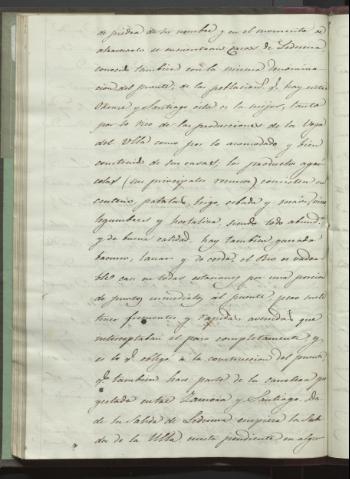 de piedra de su nombre y en el momento de
atravesarlo se encuentran casas de Ledesma
conocida tambien con la misma denomina-
cion del puente, de las poblaciones q.e hay entre
Orense y Santiago esta es la mejor, tanto
por lo rico de las producciones de la Vega
del Ulla como por lo acomodado y bien
construido de sus casas, los productos agri-
colas (sus principales recursos) consisten en
centeno, patatas, trigo, cebada y maiz, como
legumbres y hortaliza, siendo todo abund.te
y de buena calidad, hay tambien ganado
bacuno, lanar y de cerda, el Rio es vadea-
ble casi en todas estaciones por una porcion
de puntos inmediatos al puente, pero suele
tener frecuentes y rapidas avenidas que
interceptaban el paso completamente y
es lo q.e obligó a la construccion del puente
q.e tambien hace parte de la carretera pro-
yectada entre Zamora y Santiago. Des-
de la salida de Ledesma empieza la Sub
da de la Ulla cuesta pendiente en algu-